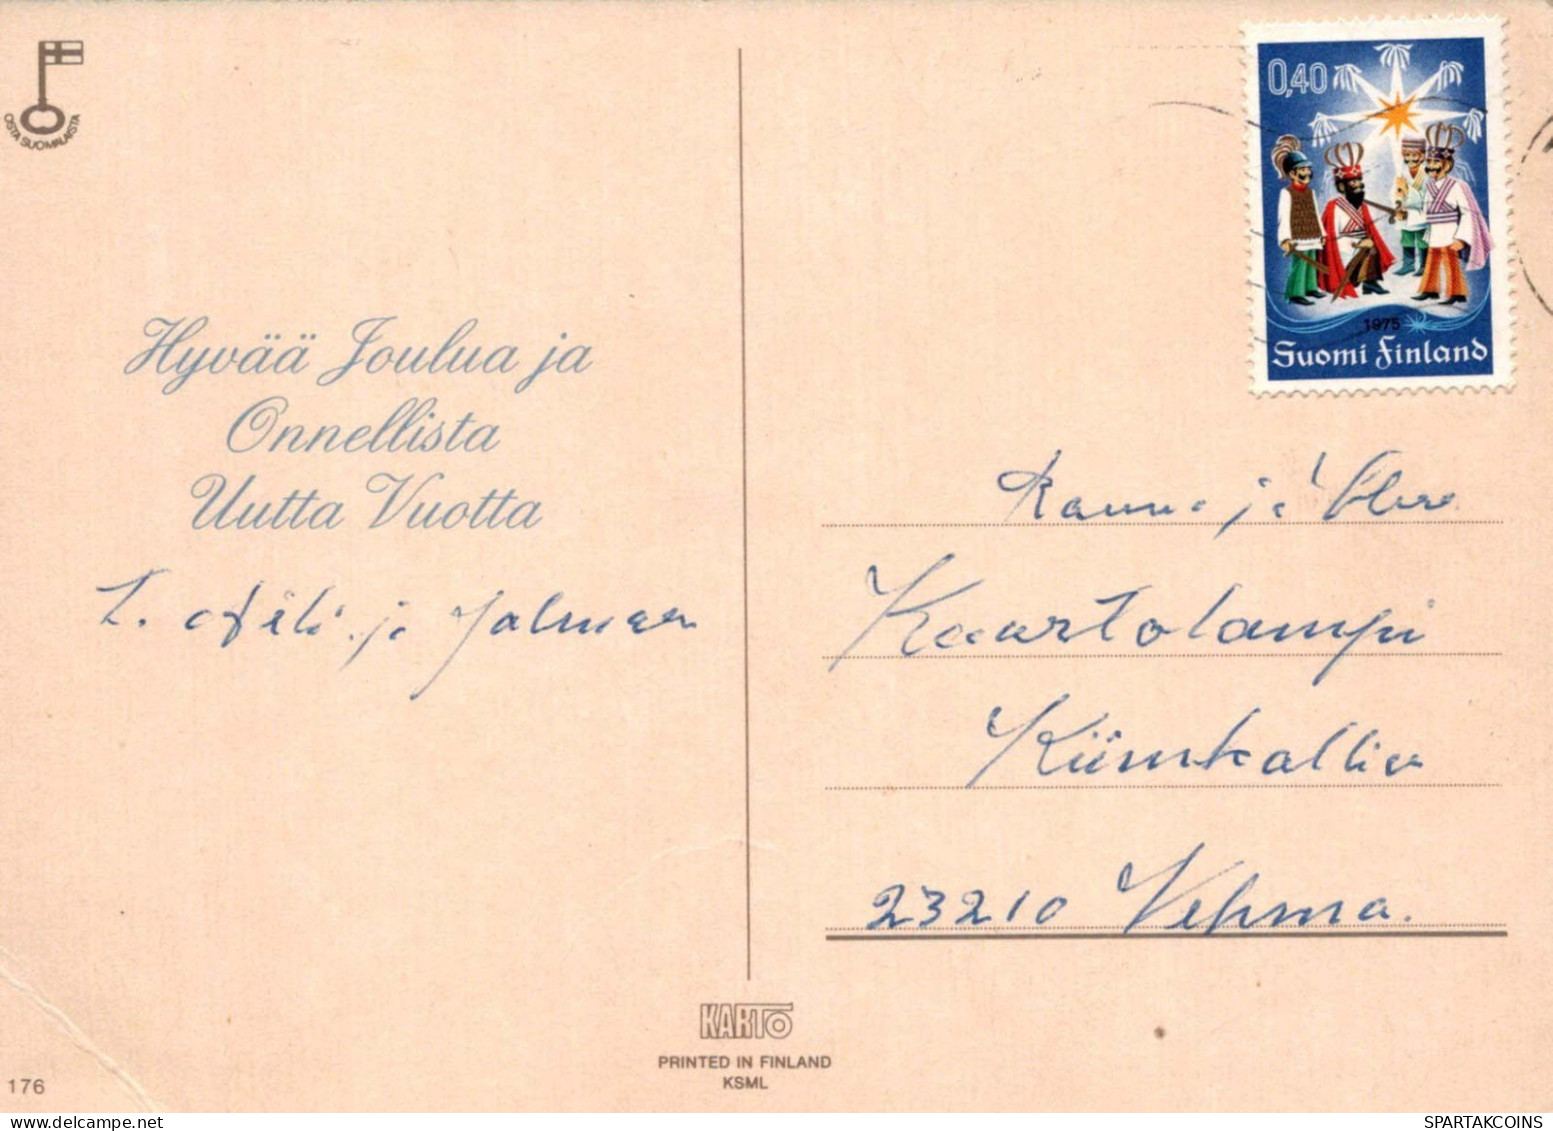 OSTA SUOMALAISTA
0,40
1975
Suomi Finland
Hyvää Joulua ja
Onnellista
Uutta Vuotta
T. Aili ja Jalmar
ja
Kaartolampi
23210 Vehmaa.
KARTO
PRINTED IN FINLAND
KSML
176
SPARTAKCOINS